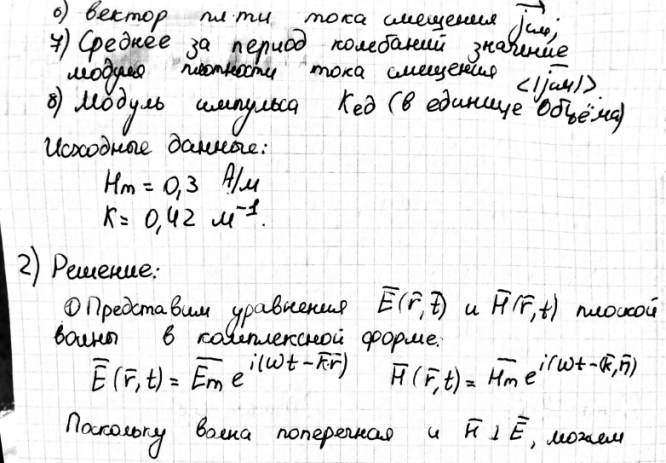 6) вектор пл-ти тока смещения j̅см;
7) Среднее за период колебаний значение
модуля плотности тока смещения <|j̅см|>
8) Модуль импульса Kед (в единице объёма)
Исходные данные:
Hm = 0,3 А/м
K = 0,42 м⁻¹.
2) Решение:
① Представим уравнения E̅(r̅,t) и H̅(r̅,t) плоской
волны в комплексной форме:
E̅(r̅,t) = E̅m e^i(ωt-k̅r̅) H̅(r̅,t) = H̅m e^i(ωt-(k̅,r̅))
Поскольку волна поперечная и H̅ ⊥ E̅, можем